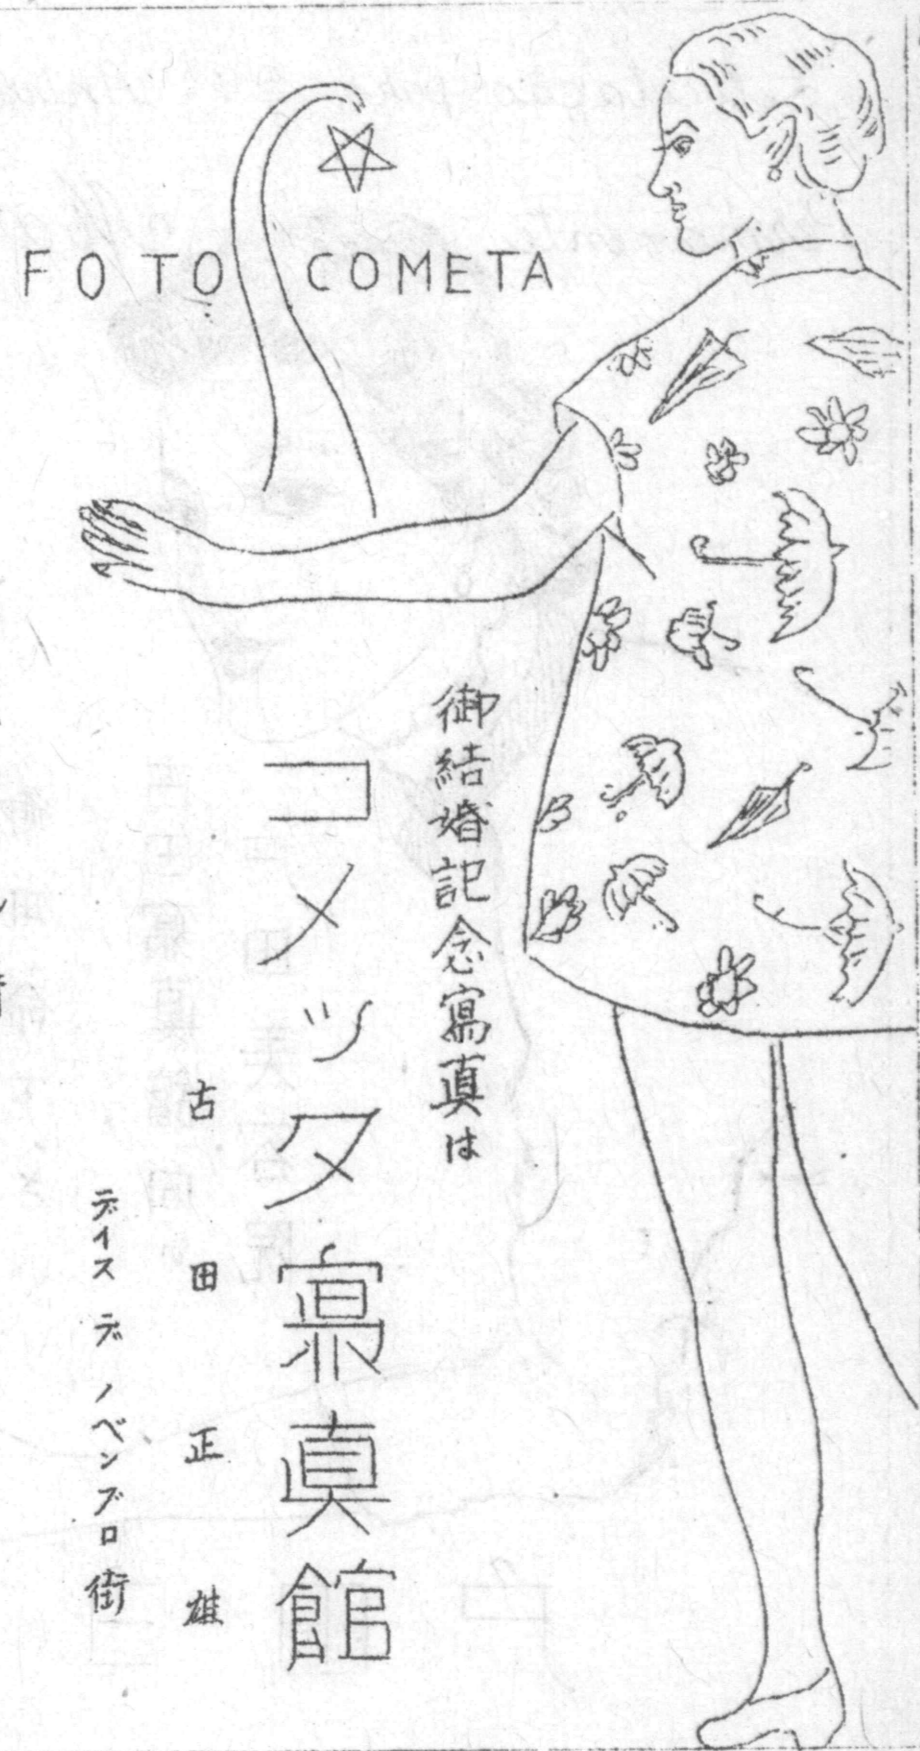 FOTO COMETA
御結婚記念寫真は
コメッタ寫真館
古田正雄
デイス デ ノベンブロ街